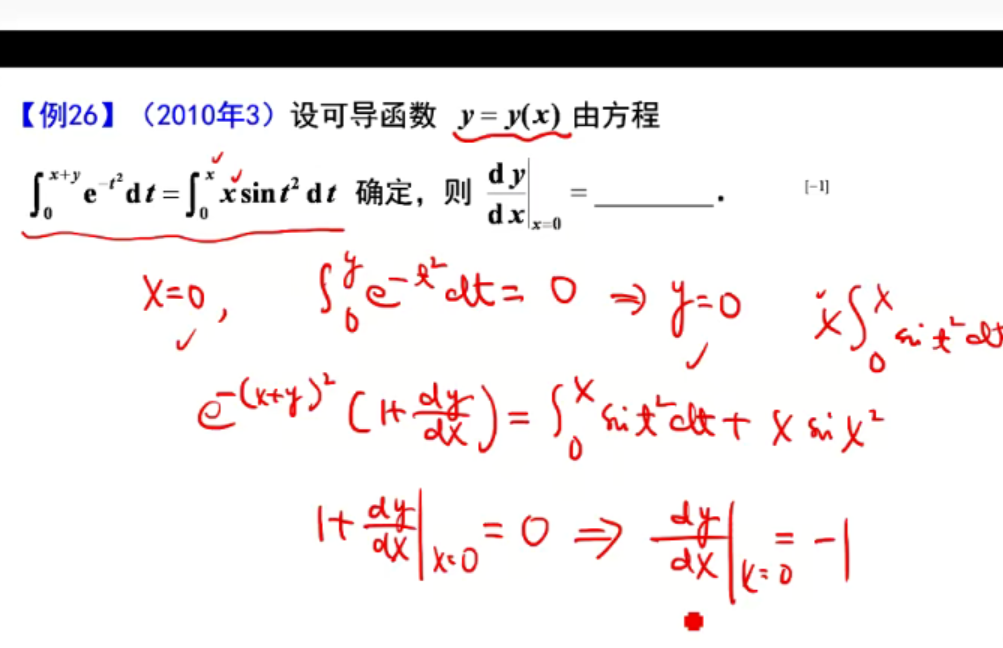 【例26】（2010年3）设可导函数 y = y(x) 由方程
∫₀^{x+y} e^{-t²} dt = ∫₀^{x} x sin t² dt 确定，则 dy/dx|ₓ₌₀ = ________. [-1]
x=0, ∫₀^{y} e^{-t²} dt = 0 ⇒ y=0 x∫₀^{x} sin t² dt
e^{-(x+y)²} (1+ dy/dx) = ∫₀^{x} sin t² dt + x sin x²
1+ dy/dx|ₓ₌₀ = 0 ⇒ dy/dx|ₓ₌₀ = -1